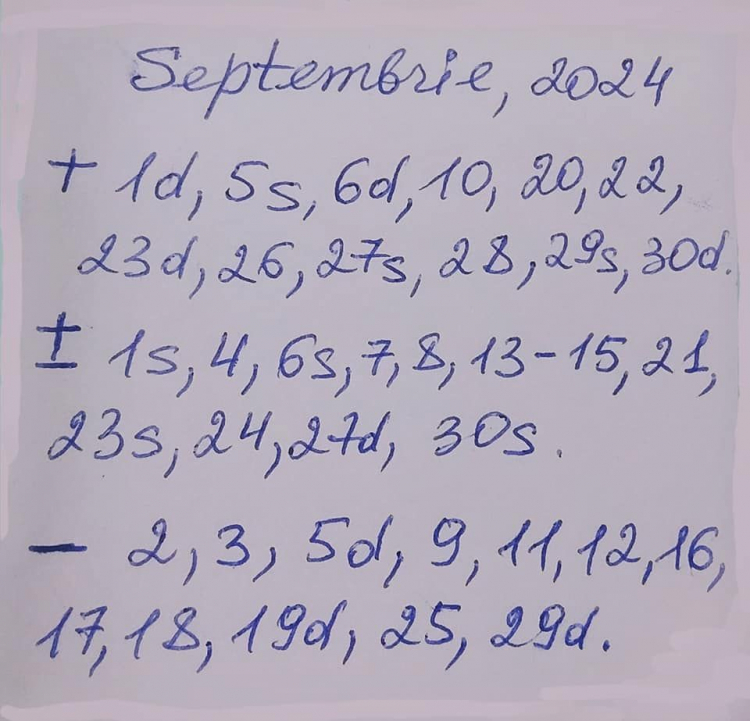 Septembrie, 2024
+ 1d, 5s, 6d, 10, 20, 22,
23d, 26, 27s, 28, 29s, 30d.
± 1s, 4, 6s, 7, 8, 13-15, 21,
23s, 24, 27d, 30s.
— 2, 3, 5d, 9, 11, 12, 16,
17, 18, 19d, 25, 29d.